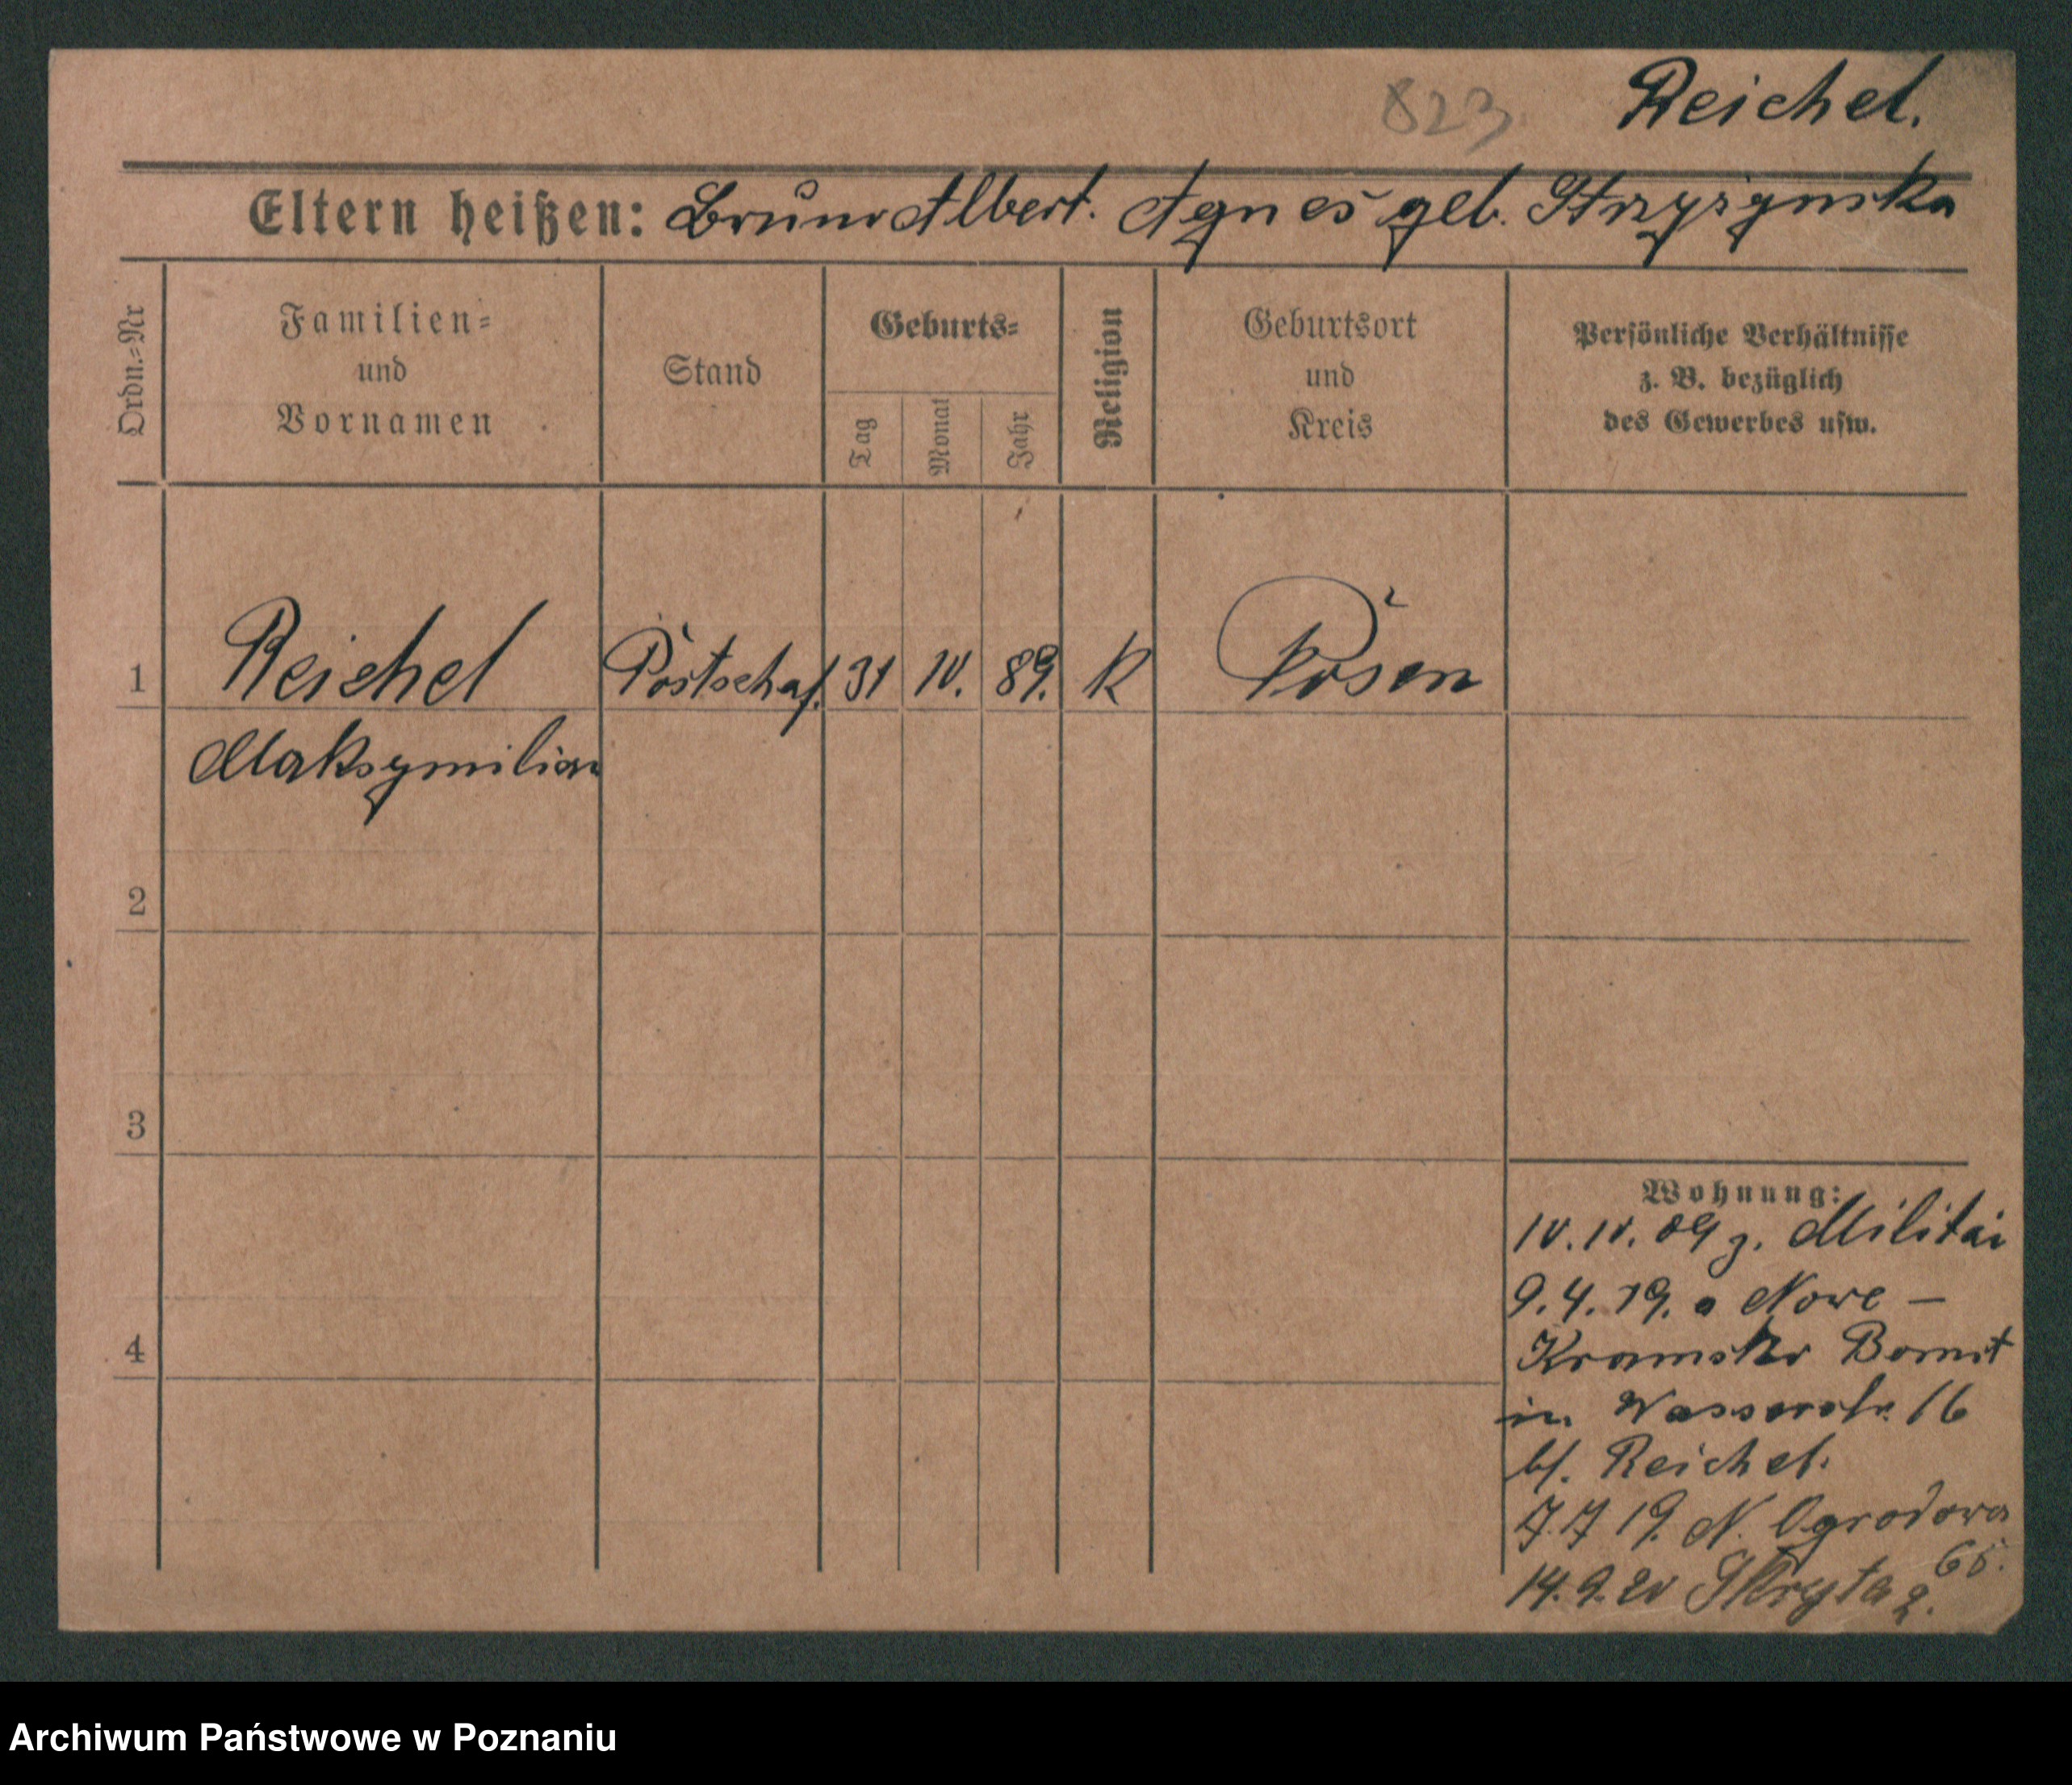 823 Reichel.
Eltern heißen: Bruno Albert. Agnes geb. Strzyzynska
Ordn.=Nr
Familien=
und
Vornamen
Stand
Geburts=
Tag
Monat
Jahr
Religion
Geburtsort
und
Kreis
Persönliche Verhältnisse
z. B. bezüglich
des Gewerbes usw.
1 Reichel Postschaf. 31 10. 89. K Posen
Maksymilian
2
3
4
Wohnung:
10.10.09 z. Militär
9.4.19. a Nowe –
Kramsko Bomst
in Wasserstr. 16
bf. Reichel.
7.7 19. N. Ogrodowa
65.
14.9.20 Skryta 2.
Archiwum Państwowe w Poznaniu